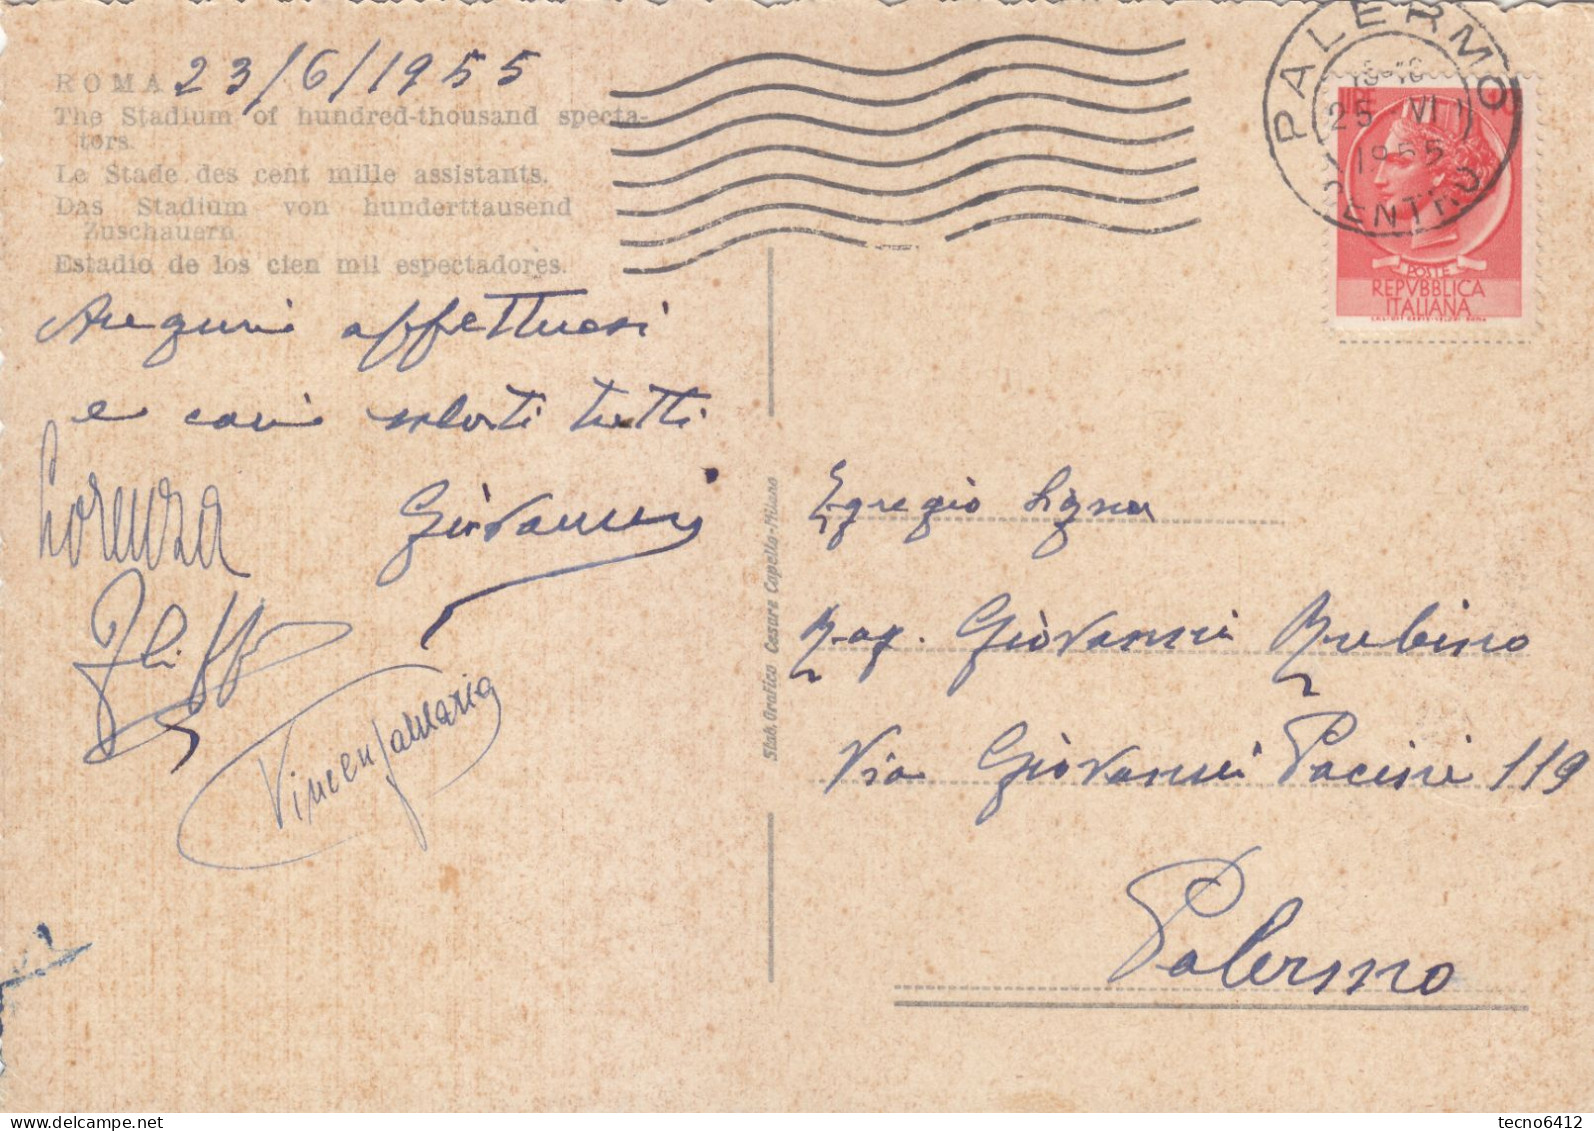 ROMA 23/6/1955
The Stadium of hundred-thousand specta-
tors.
Le Stade des cent mille assistants.
Das Stadium von hunderttausend
Zuschauern
Estadio de los cien mil espectadores.
Auguri affettuosi
e cari saluti tutti
Lorenza
Giovanni
Stab. Grafico Cesare Capello-Milano
PALERMO
25 VI
1955
CENTRO
POSTE
REPVBBLICA
ITALIANA
Egregio Signor
Rag. Giovanni Rubino
Via Giovanni Pacini 119
Palermo
tecno6412